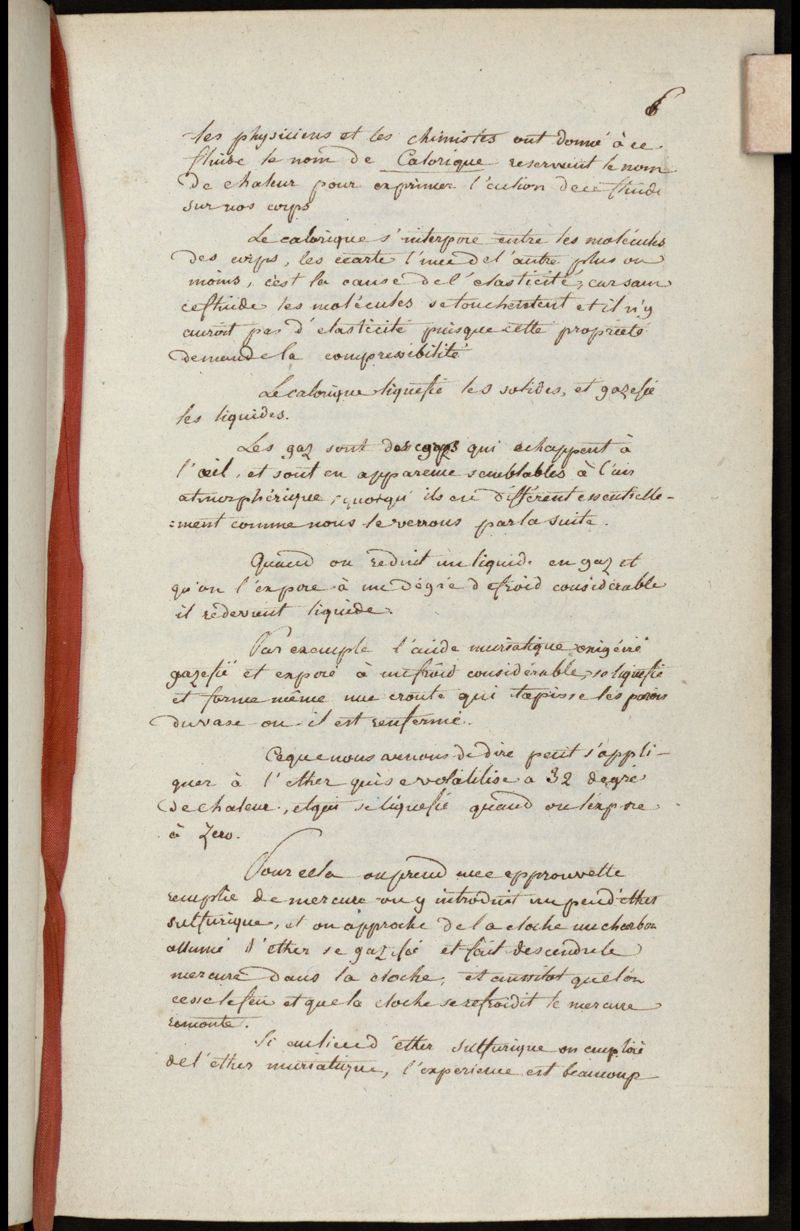 6
les physiciens et les chimistes ont donné à ce
fluide le nom de Calorique reservant le nom
de chaleur pour exprimer l'action de ce fluide
sur nos corps
Le calorique s'interpose entre les molécules
des corps, les ecarte l'une de l'autre plus ou
moins, c'est la cause de l'elasticité, car sans
ce fluide les molécules se toucheroient et il n'y
auroit pas d'elasticité puisque cette propriété
demande la compressibilité
Le calorique liquefie les solides, et gazefie
les liquides.
Les gaz sont des corps qui echappent à
l'œil, et sont en apparence semblables à l'air
atmospherique, quoiqu'ils en différent essentielle-
=ment comme nous le verrons par la suite.
Quand on reduit un liquide en gaz et
qu'on l'expose à un dégré de froid considérable
il redevient liquide.
Par exemple l'acide muriatique oxigéné
gazefié et exposé à un froid considérable, se liquefie
et forme même une croute qui tapisse les parois
du vase ou il est renfermé.
Ce que nous avons de dire peut s'appli-
quer à l'ether qui se volatilise a 32 degré
de chaleur, et qui se liquefie quand on l'expose
à Zero.
Pour cela on prend une epprouvette
remplie de mercure on y introduit un peu d'ether
sulfurique, et on approche de la cloche un charbon
allumé l'ether se gazefie et fait descendre le
mercure dans la cloche, et aussitot que l'on
cesse le feu et que la cloche se refroidit le mercure
remonte.
Si au lieu d'ether sulfurique on emploie
de l'ether muriatique, l'experience est beaucoup